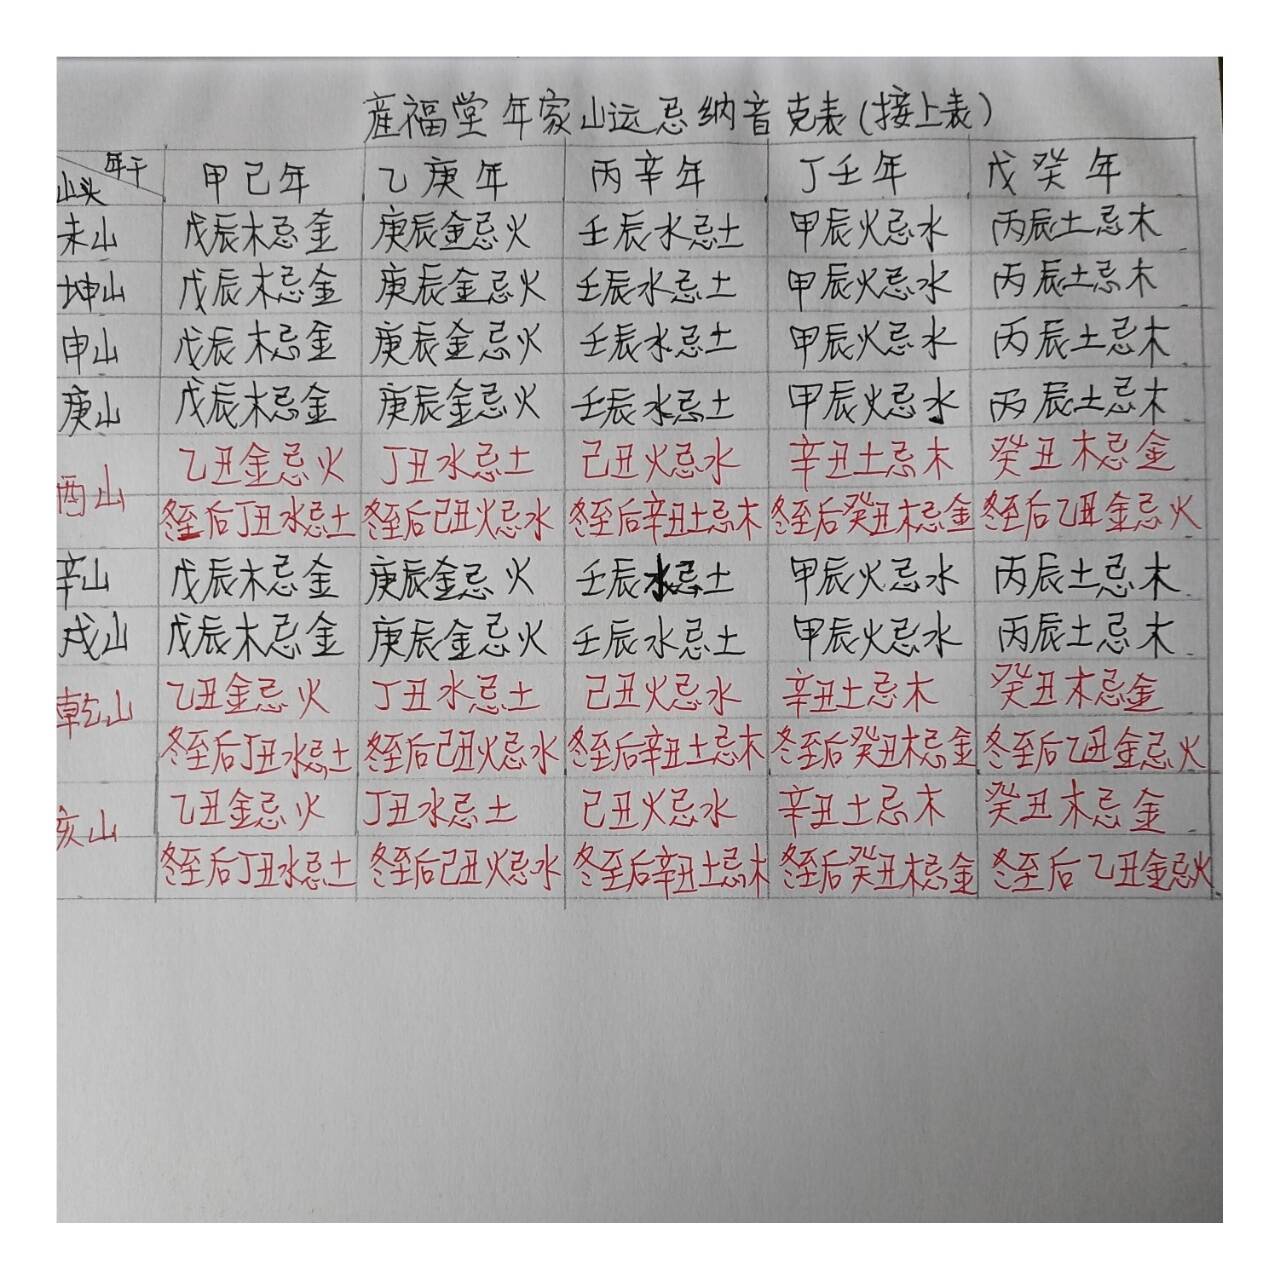 产福堂年家山运忌纳音克表(接上表)
年干 山头 甲己年 乙庚年 丙辛年 丁壬年 戊癸年
未山 戊辰木忌金 庚辰金忌火 壬辰水忌土 甲辰火忌水 丙辰土忌木
坤山 戊辰木忌金 庚辰金忌火 壬辰水忌土 甲辰火忌水 丙辰土忌木
申山 戊辰木忌金 庚辰金忌火 壬辰水忌土 甲辰火忌水 丙辰土忌木
庚山 戊辰木忌金 庚辰金忌火 壬辰水忌土 甲辰火忌水 丙辰土忌木
酉山 乙丑金忌火 丁丑水忌土 己丑火忌水 辛丑土忌木 癸丑木忌金
冬至后丁丑水忌土 冬至后己丑火忌水 冬至后辛丑土忌木 冬至后癸丑木忌金 冬至后乙丑金忌火
辛山 戊辰木忌金 庚辰金忌火 壬辰水忌土 甲辰火忌水 丙辰土忌木
戌山 戊辰木忌金 庚辰金忌火 壬辰水忌土 甲辰火忌水 丙辰土忌木
乾山 乙丑金忌火 丁丑水忌土 己丑火忌水 辛丑土忌木 癸丑木忌金
冬至后丁丑水忌土 冬至后己丑火忌水 冬至后辛丑土忌木 冬至后癸丑木忌金 冬至后乙丑金忌火
亥山 乙丑金忌火 丁丑水忌土 己丑火忌水 辛丑土忌木 癸丑木忌金
冬至后丁丑水忌土 冬至后己丑火忌水 冬至后辛丑土忌木 冬至后癸丑木忌金 冬至后乙丑金忌火